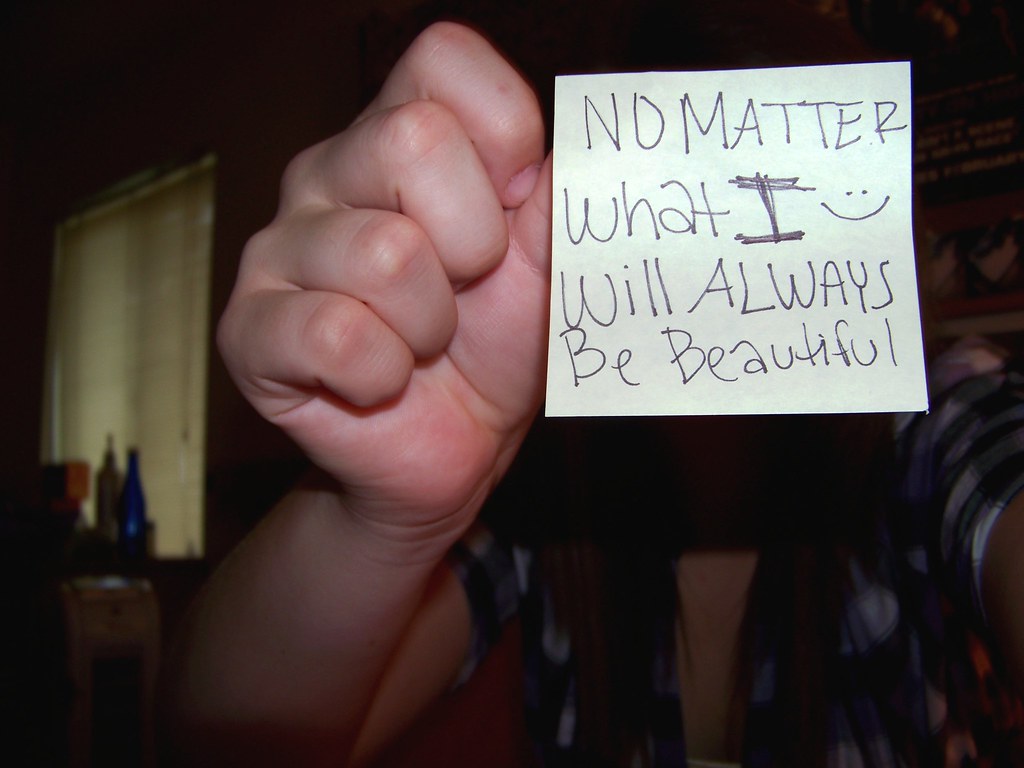 NO MATTER
What I
Will ALWAYS
Be Beautiful